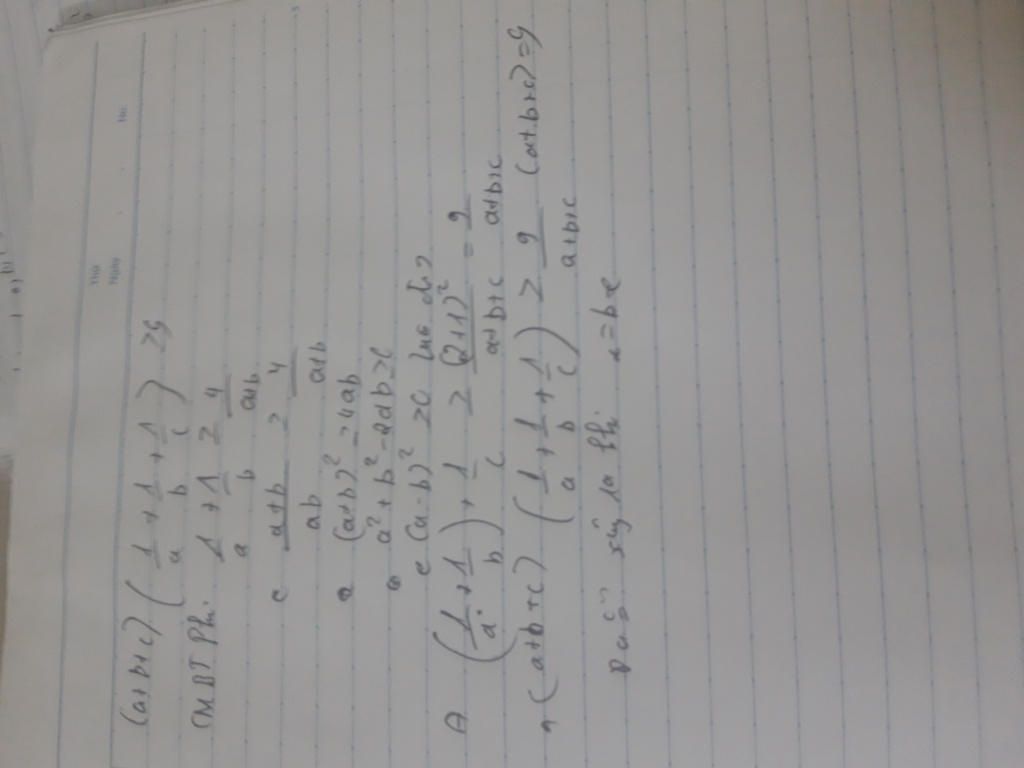 Thứ
Ngày
No.
(a+b+c) (1/a + 1/b + 1/c) ≥ 9
CM BĐT phụ: 1/a + 1/b ≥ 4/(a+b)
(a+b)/ab ≥ 4/(a+b)
(a+b)² ≥ 4ab
a² + b² - 2ab ≥ 0
(a-b)² ≥ 0 luôn
(1/a + 1/b) + 1/c ≥ (2+1)²/(a+b+c) = 9/(a+b+c)
(a+b+c) (1/a + 1/b + 1/c) ≥ 9/(a+b+c) (a+b+c) = 9
Dấu "=" xảy ra khi a=b=c